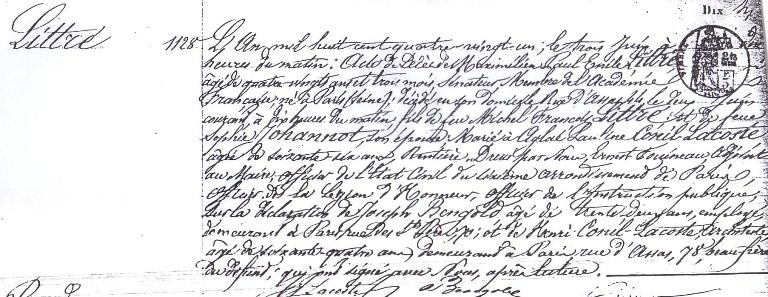 Dix
Littré
1128
L'An mil huit cent quatre-vingt-un, le trois Juin à
heures du matin: Acte de décès de Maximilien Paul Emile Littré
âgé de quatre vingts ans et trois mois, Sénateur, Membre de l'Académie
Française, né à Paris (Seine); décédé en son domicile Rue d'Assas, le deux Juin
courant, à heures du matin, fils de feu Michel François Littré et de feue
Sophie Johannot, son épouse. Marié à Aglaé Pauline Conil Lacoste
âgée de soixante-six ans, Rentière. Dressé par Nous, Ernest Adjoint
au Maire, officier de l'Etat Civil du sixième arrondissement de Paris,
officier de la Légion d'Honneur, officier de l'Instruction publique,
sur la déclaration de Joseph âgé de trente deux ans, employé
demeurant à Paris rue des et de Henri Conil-Lacoste Architecte
âgé de soixante-quatre ans demeurant à Paris rue d'Assas, 78, beau-frère
du défunt; qui ont signé avec Nous, après lecture.
H Lacoste